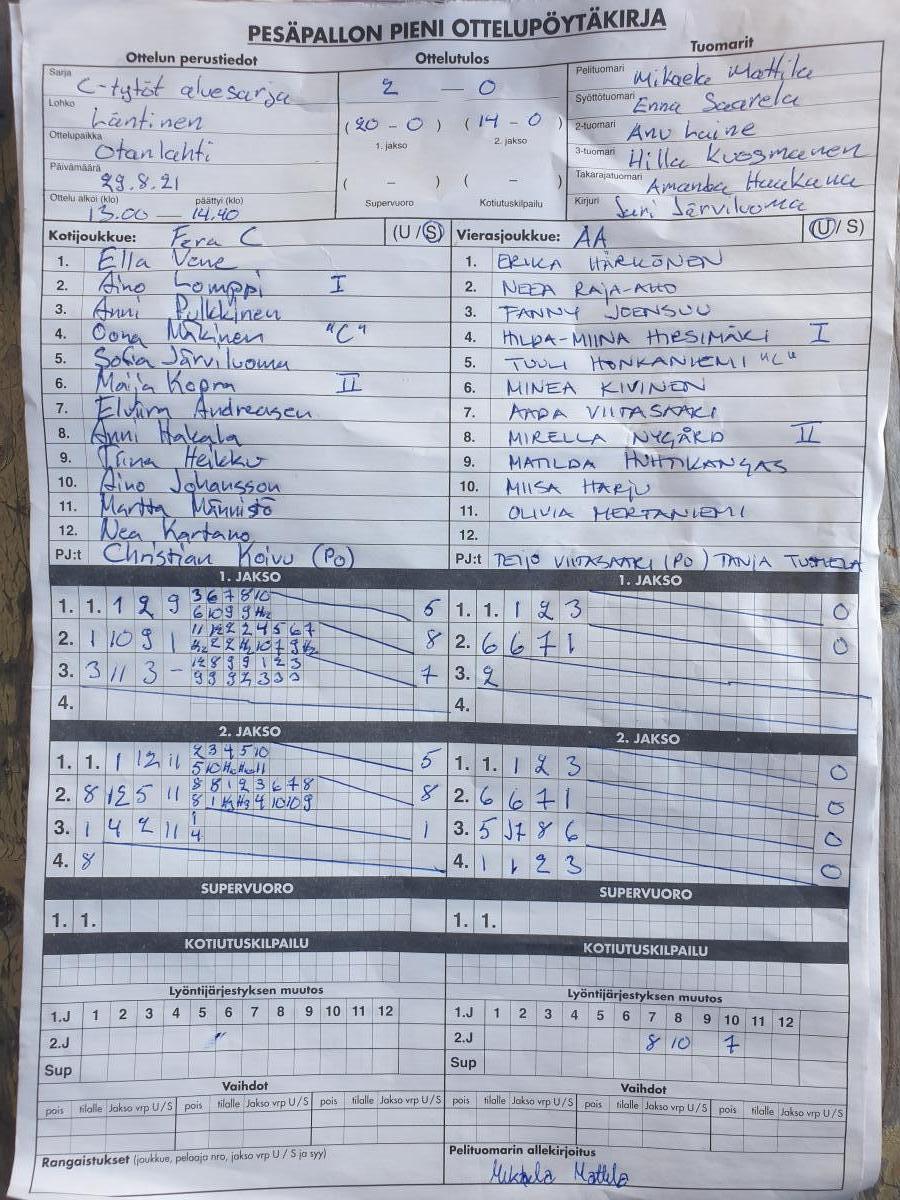 PESÄPALLON PIENI OTTELUPÖYTÄKIRJA
Ottelun perustiedot
Ottelutulos
Tuomarit
Sarja C-tytöt aluesarja
Lohko Läntinen
Ottelupaikka Otanlahti
Päivämäärä 29.8.21
Ottelu alkoi (klo) päättyi (klo)
13.00 — 14.40
2 — 0
(20 - 0) (14 - 0)
1. jakso 2. jakso
( - ) ( - )
Supervuoro Kotiutuskilpailu
Pelituomari Mikaela Mattila
Syöttötuomari Enna Saarela
2-tuomari Anu Laine
3-tuomari Hilla Kuosmanen
Takarajatuomari Amanda
Kirjuri Suni Järviluoma
Kotijoukkue: Fera C (U / S)
1. Ella Vene
2. Aino Lomppi I
3. Anni Pulkkinen
4. Oona Mäkinen "C"
5. Sofia Järviluoma
6. Maija Kopra II
7. Andreasen
8. Anni Hakala
9. Heikku
10. Aino Johansson
11. Martta Männistö
12. Nea Kartano
PJ:t Christian Koivu (Po)
Vierasjoukkue: AA (U / S)
1. ERIKA HÄRKÖNEN
2. NEEA RAJA-AHO
3. FANNY JOENSUU
4. HILDA-MIINA HIRSIMÄKI I
5. TUULI HONKANIEMI "C"
6. MINEA KIVINEN
7. AADA VIITASAARI
8. MIRELLA NYGÅRD II
9. MATILDA HUHTIKANGAS
10. MIISA HARJU
11. OLIVIA MERTANIEMI
12.
PJ:t TEIJO VIITASAARI (PO) TANJA
1. JAKSO
1. 1. 1 2 9 3 6 7 8 10 5
2. 1 10 9 1 8
3. 3 11 3 - 7
4.
1. JAKSO
1. 1. 1 2 3 0
2. 6 6 7 1 0
3. 2
4.
2. JAKSO
1. 1. 1 12 11 2 3 4 5 10 5
2. 8 12 5 11 8 8 1 2 3 6 7 8 8
3. 1 4 2 11 1 1
4
4. 8
2. JAKSO
1. 1. 1 2 3 0
2. 6 6 7 1 0
3. 5 8 6 0
4. 1 1 2 3 0
SUPERVUORO
1. 1.
SUPERVUORO
1. 1.
KOTIUTUSKILPAILU
KOTIUTUSKILPAILU
Lyöntijärjestyksen muutos
1.J 1 2 3 4 5 6 7 8 9 10 11 12
2.J
Sup
Lyöntijärjestyksen muutos
1.J 1 2 3 4 5 6 7 8 9 10 11 12
2.J 8 10 7
Sup
Vaihdot
pois tilalle Jakso vrp U / S pois tilalle Jakso vrp U / S pois tilalle Jakso vrp U / S
Vaihdot
pois tilalle Jakso vrp U / S pois tilalle Jakso vrp U / S pois tilalle Jakso vrp U / S
Rangaistukset (joukkue, pelaaja nro, jakso vrp U / S ja syy)
Pelituomarin allekirjoitus
Mikaela Mattila